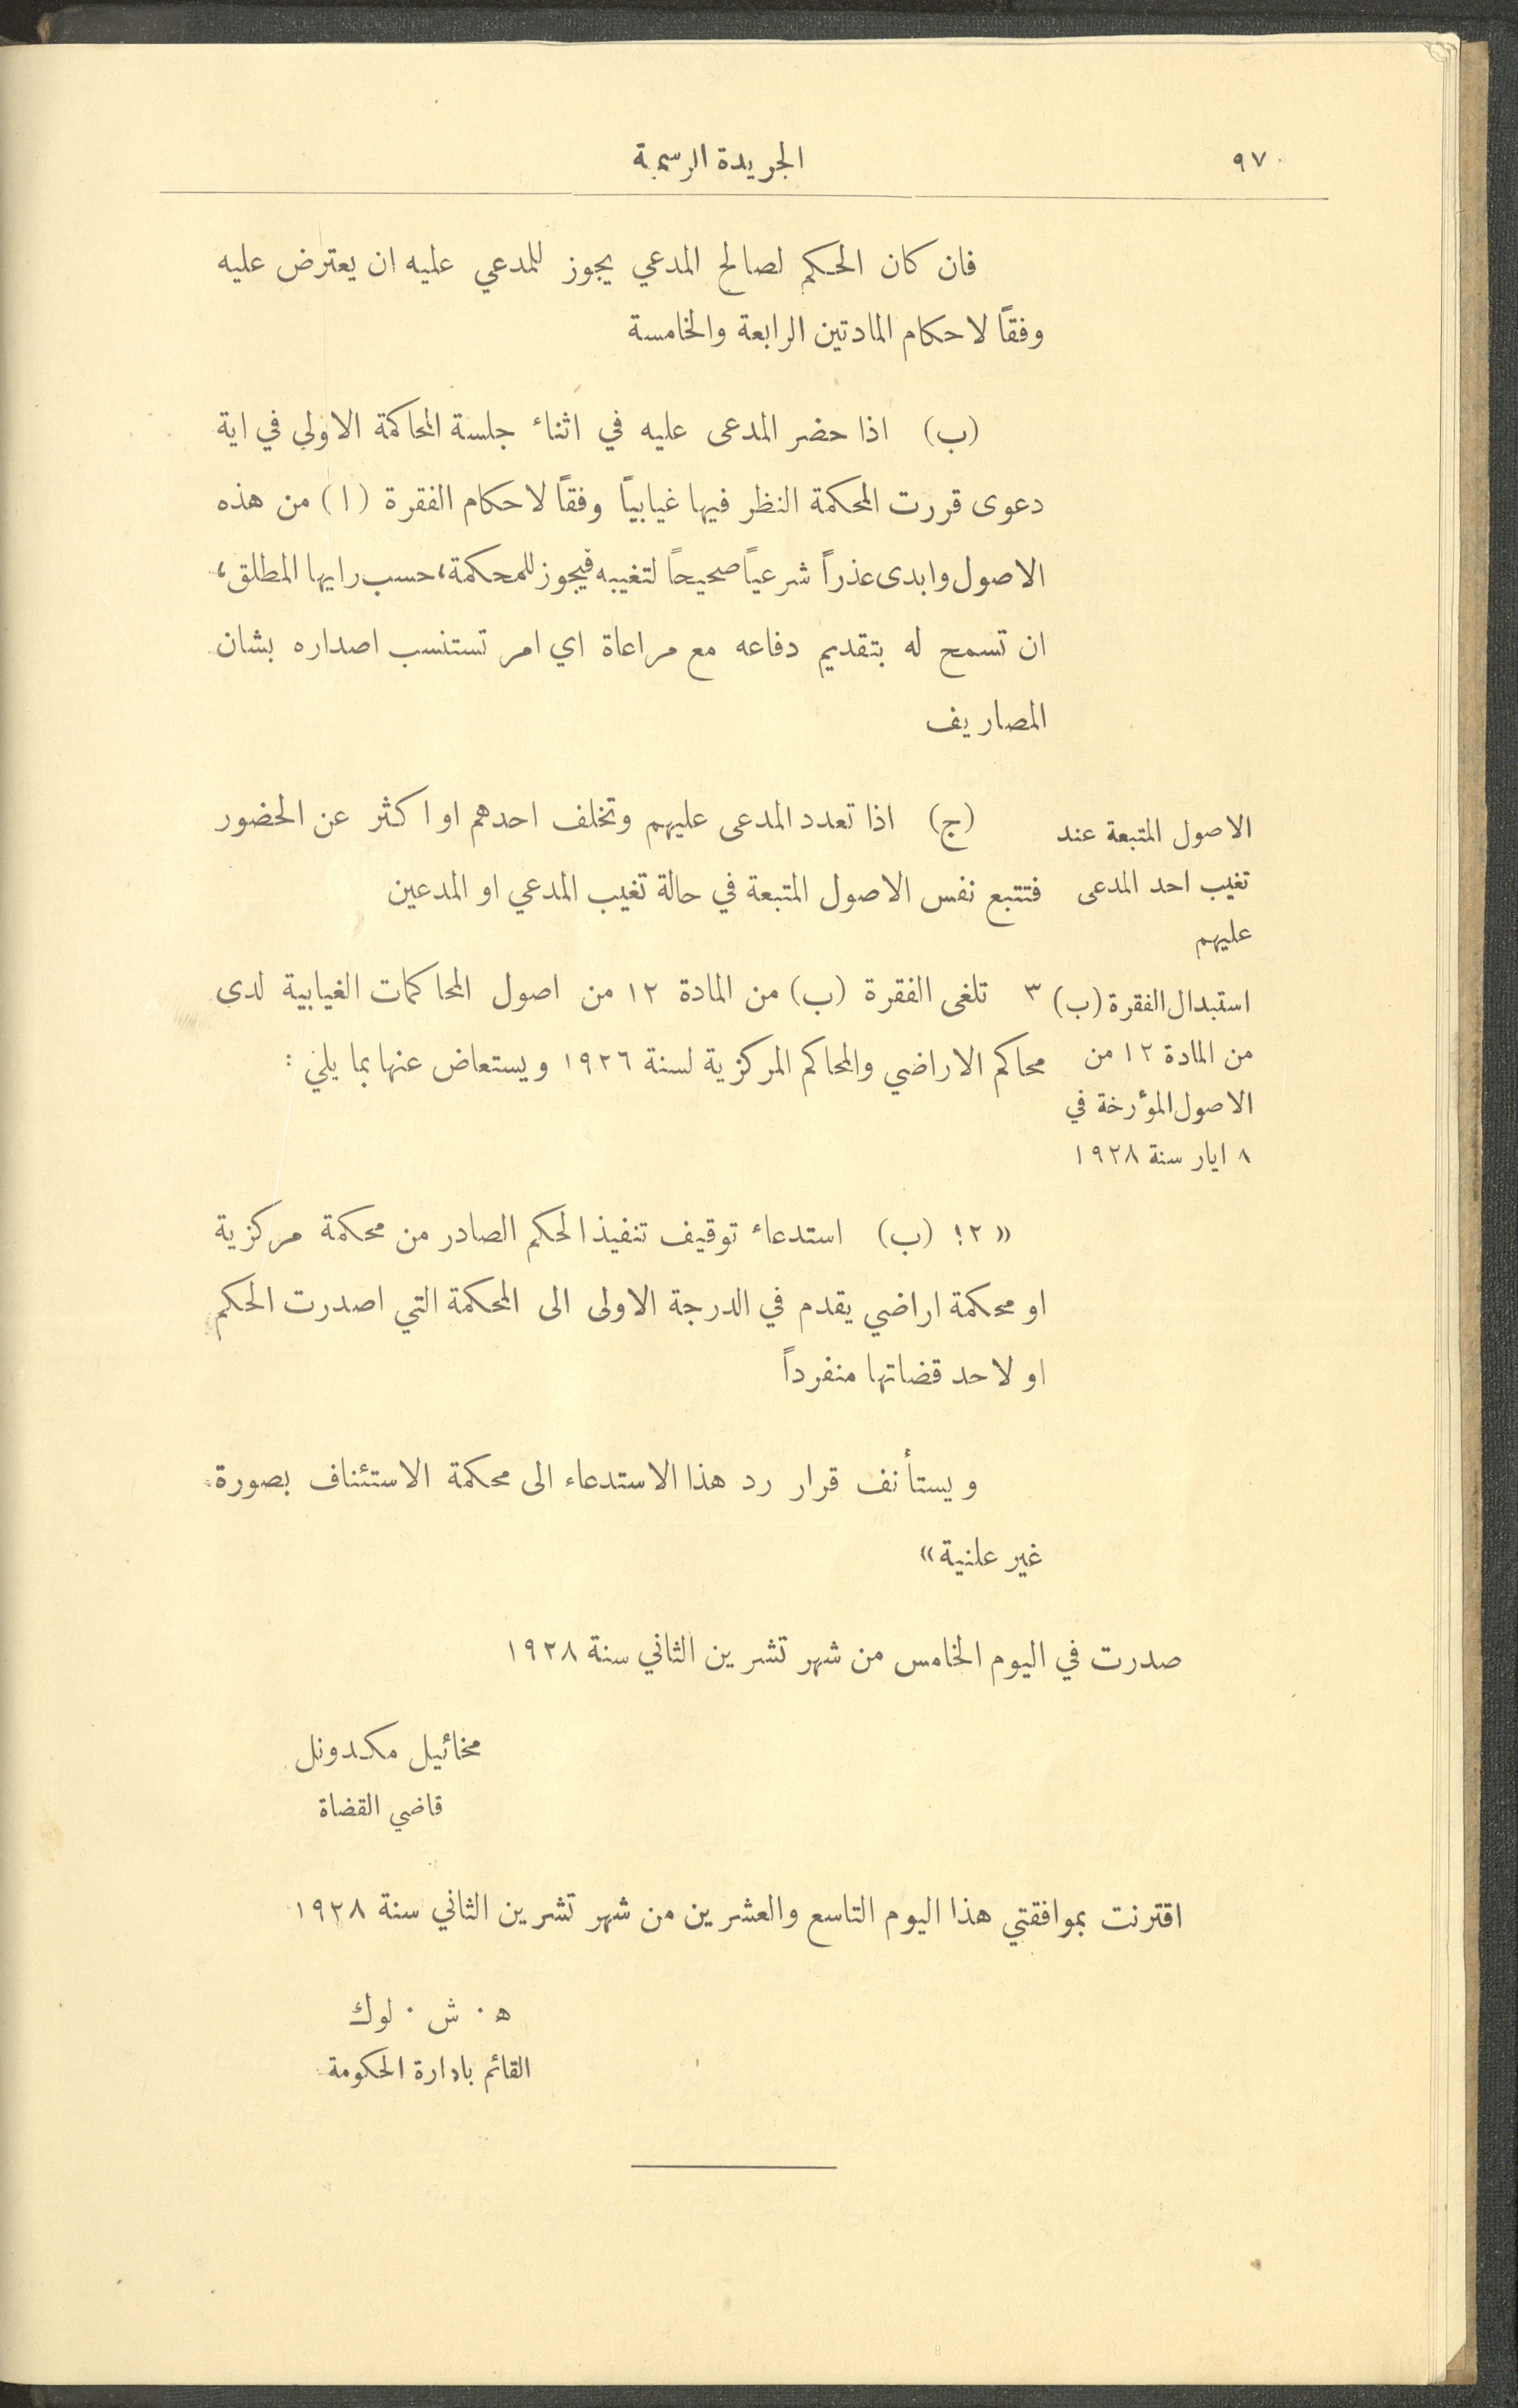 ٩٧٠
الجريدة الرسمية
فان كان الحكم لصالح المدعي يجوز للمدعي عليه ان يعترض عليه
وفقاً لاحكام المادتين الرابعة والخامسة
(ب) اذا حضر المدعى عليه في اثناء جلسة المحاكمة الاولى في اية
دعوى قررت المحكمة النظر فيها غيابياً وفقاً لاحكام الفقرة (ا) من هذه
الاصول وابدى عذراً شرعياً صحيحاً لتغيبه فيجوز للمحكمة، حسب رايها المطلق،
ان تسمح له بتقديم دفاعه مع مراعاة اي امر تستنسب اصداره بشان
المصاريف
الاصول المتبعة عند
تغيب احد المدعى
عليهم
(ج) اذا تعدد المدعى عليهم وتخلف احدهم او اكثر عن الحضور
فتتبع نفس الاصول المتبعة في حالة تغيب المدعي او المدعين
استبدال الفقرة (ب)
من المادة ١٢ من
الاصول المؤرخة في
٨ ايار سنة ١٩٢٨
٣ تلغى الفقرة (ب) من المادة ١٢ من اصول المحاكمات الغيابية لدى
محاكم الاراضي والمحاكم المركزية لسنة ١٩٢٦ ويستعاض عنها بما يلي :
« ١٢ (ب) استدعاء توقيف تنفيذ الحكم الصادر من محكمة مركزية
او محكمة اراضي يقدم في الدرجة الاولى الى المحكمة التي اصدرت الحكم
او لاحد قضاتها منفرداً
ويستأنف قرار رد هذا الاستدعاء الى محكمة الاستئناف بصورة
غير علنية »
صدرت في اليوم الخامس من شهر تشرين الثاني سنة ١٩٢٨
مخائيل مكدونل
قاضي القضاة
اقترنت بموافقتي هذا اليوم التاسع والعشرين من شهر تشرين الثاني سنة ١٩٢٨
ه ٠ ش ٠ لوك
القائم بادارة الحكومة